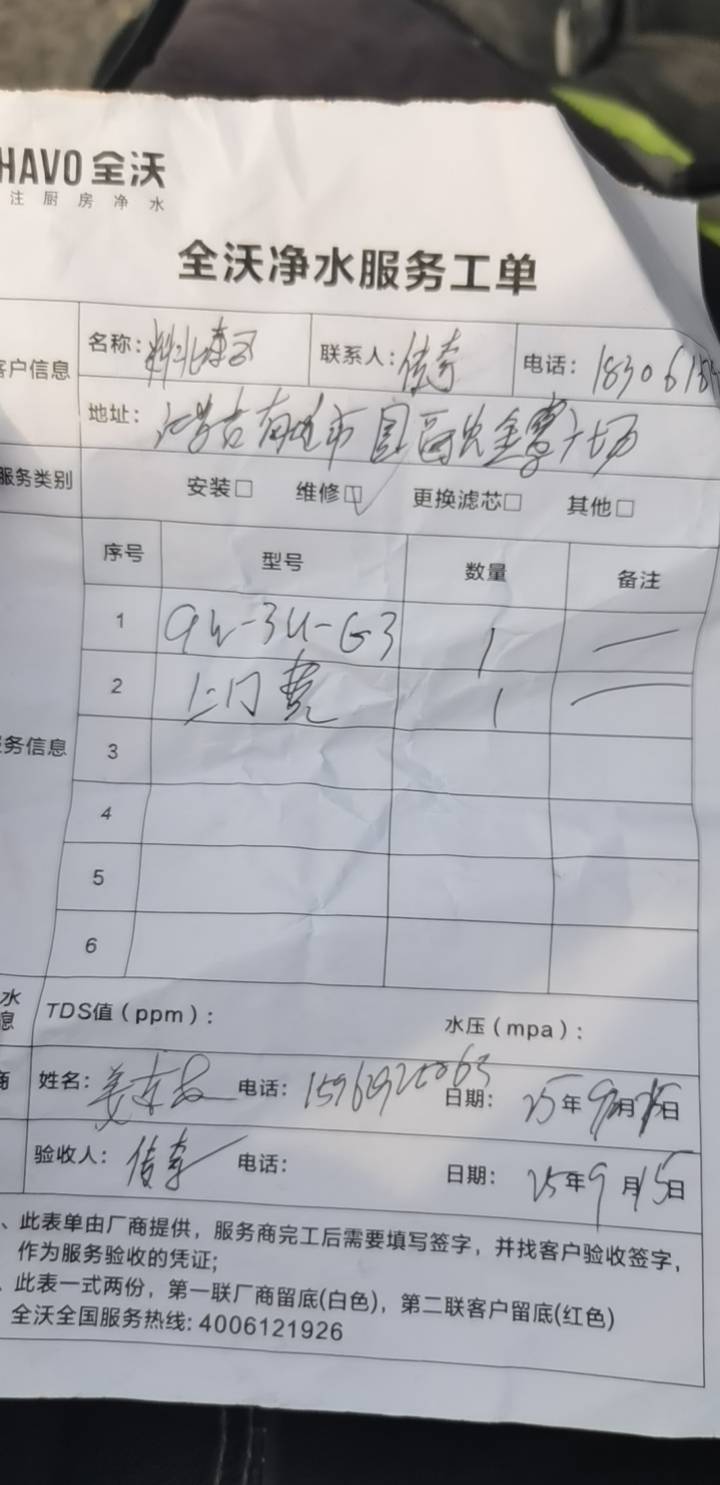 HAVO 全沃
注厨房净水
全沃净水服务工单
客户信息 名称: 联系人: 电话: 183061
地址: 市 广场
服务类别 安装□ 维修☑ 更换滤芯□ 其他□
序号 型号 数量 备注
1 QW-3U-G3 1 —
2 上门费 1 —
务信息 3
4
5
6
水 TDS值(ppm): 水压(mpa):
息
商 姓名: 电话: 日期: 25年9月15日
验收人: 电话: 日期: 25年9月15日
、此表单由厂商提供，服务商完工后需要填写签字，并找客户验收签字，
作为服务验收的凭证;
、此表一式两份，第一联厂商留底(白色)，第二联客户留底(红色)
全沃全国服务热线: 4006121926